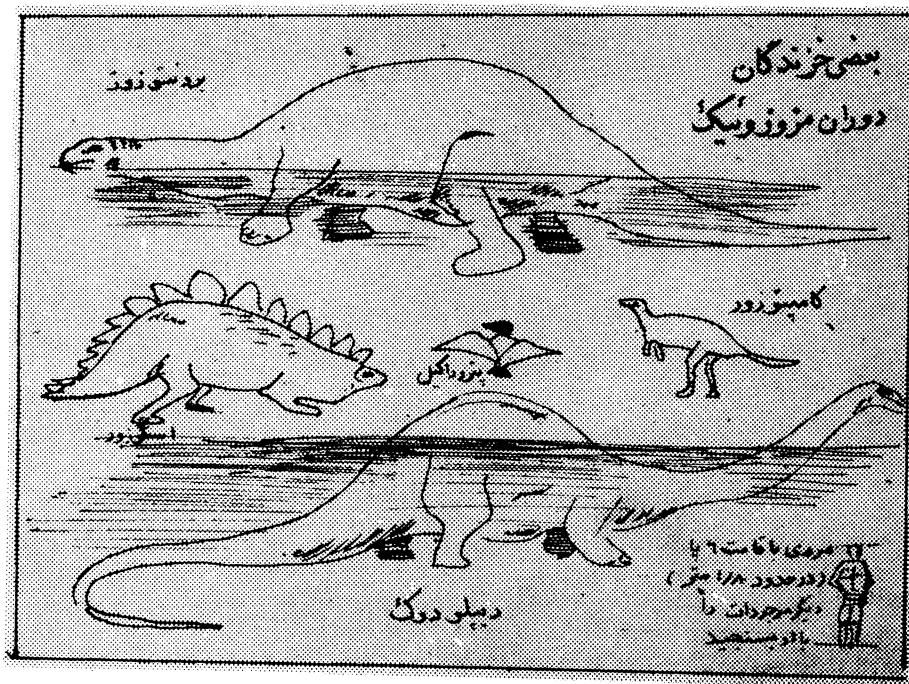 بعضی خزندگان
دوران مزوزوئیک
برونتوزور
کامپتوزور
پتروداکتیل
استگوزور
دیپلودوک
مردی با قامت ۶ پا
(در حدود ۱/۸ متر)
دیگر موجودات را
با او بسنجید